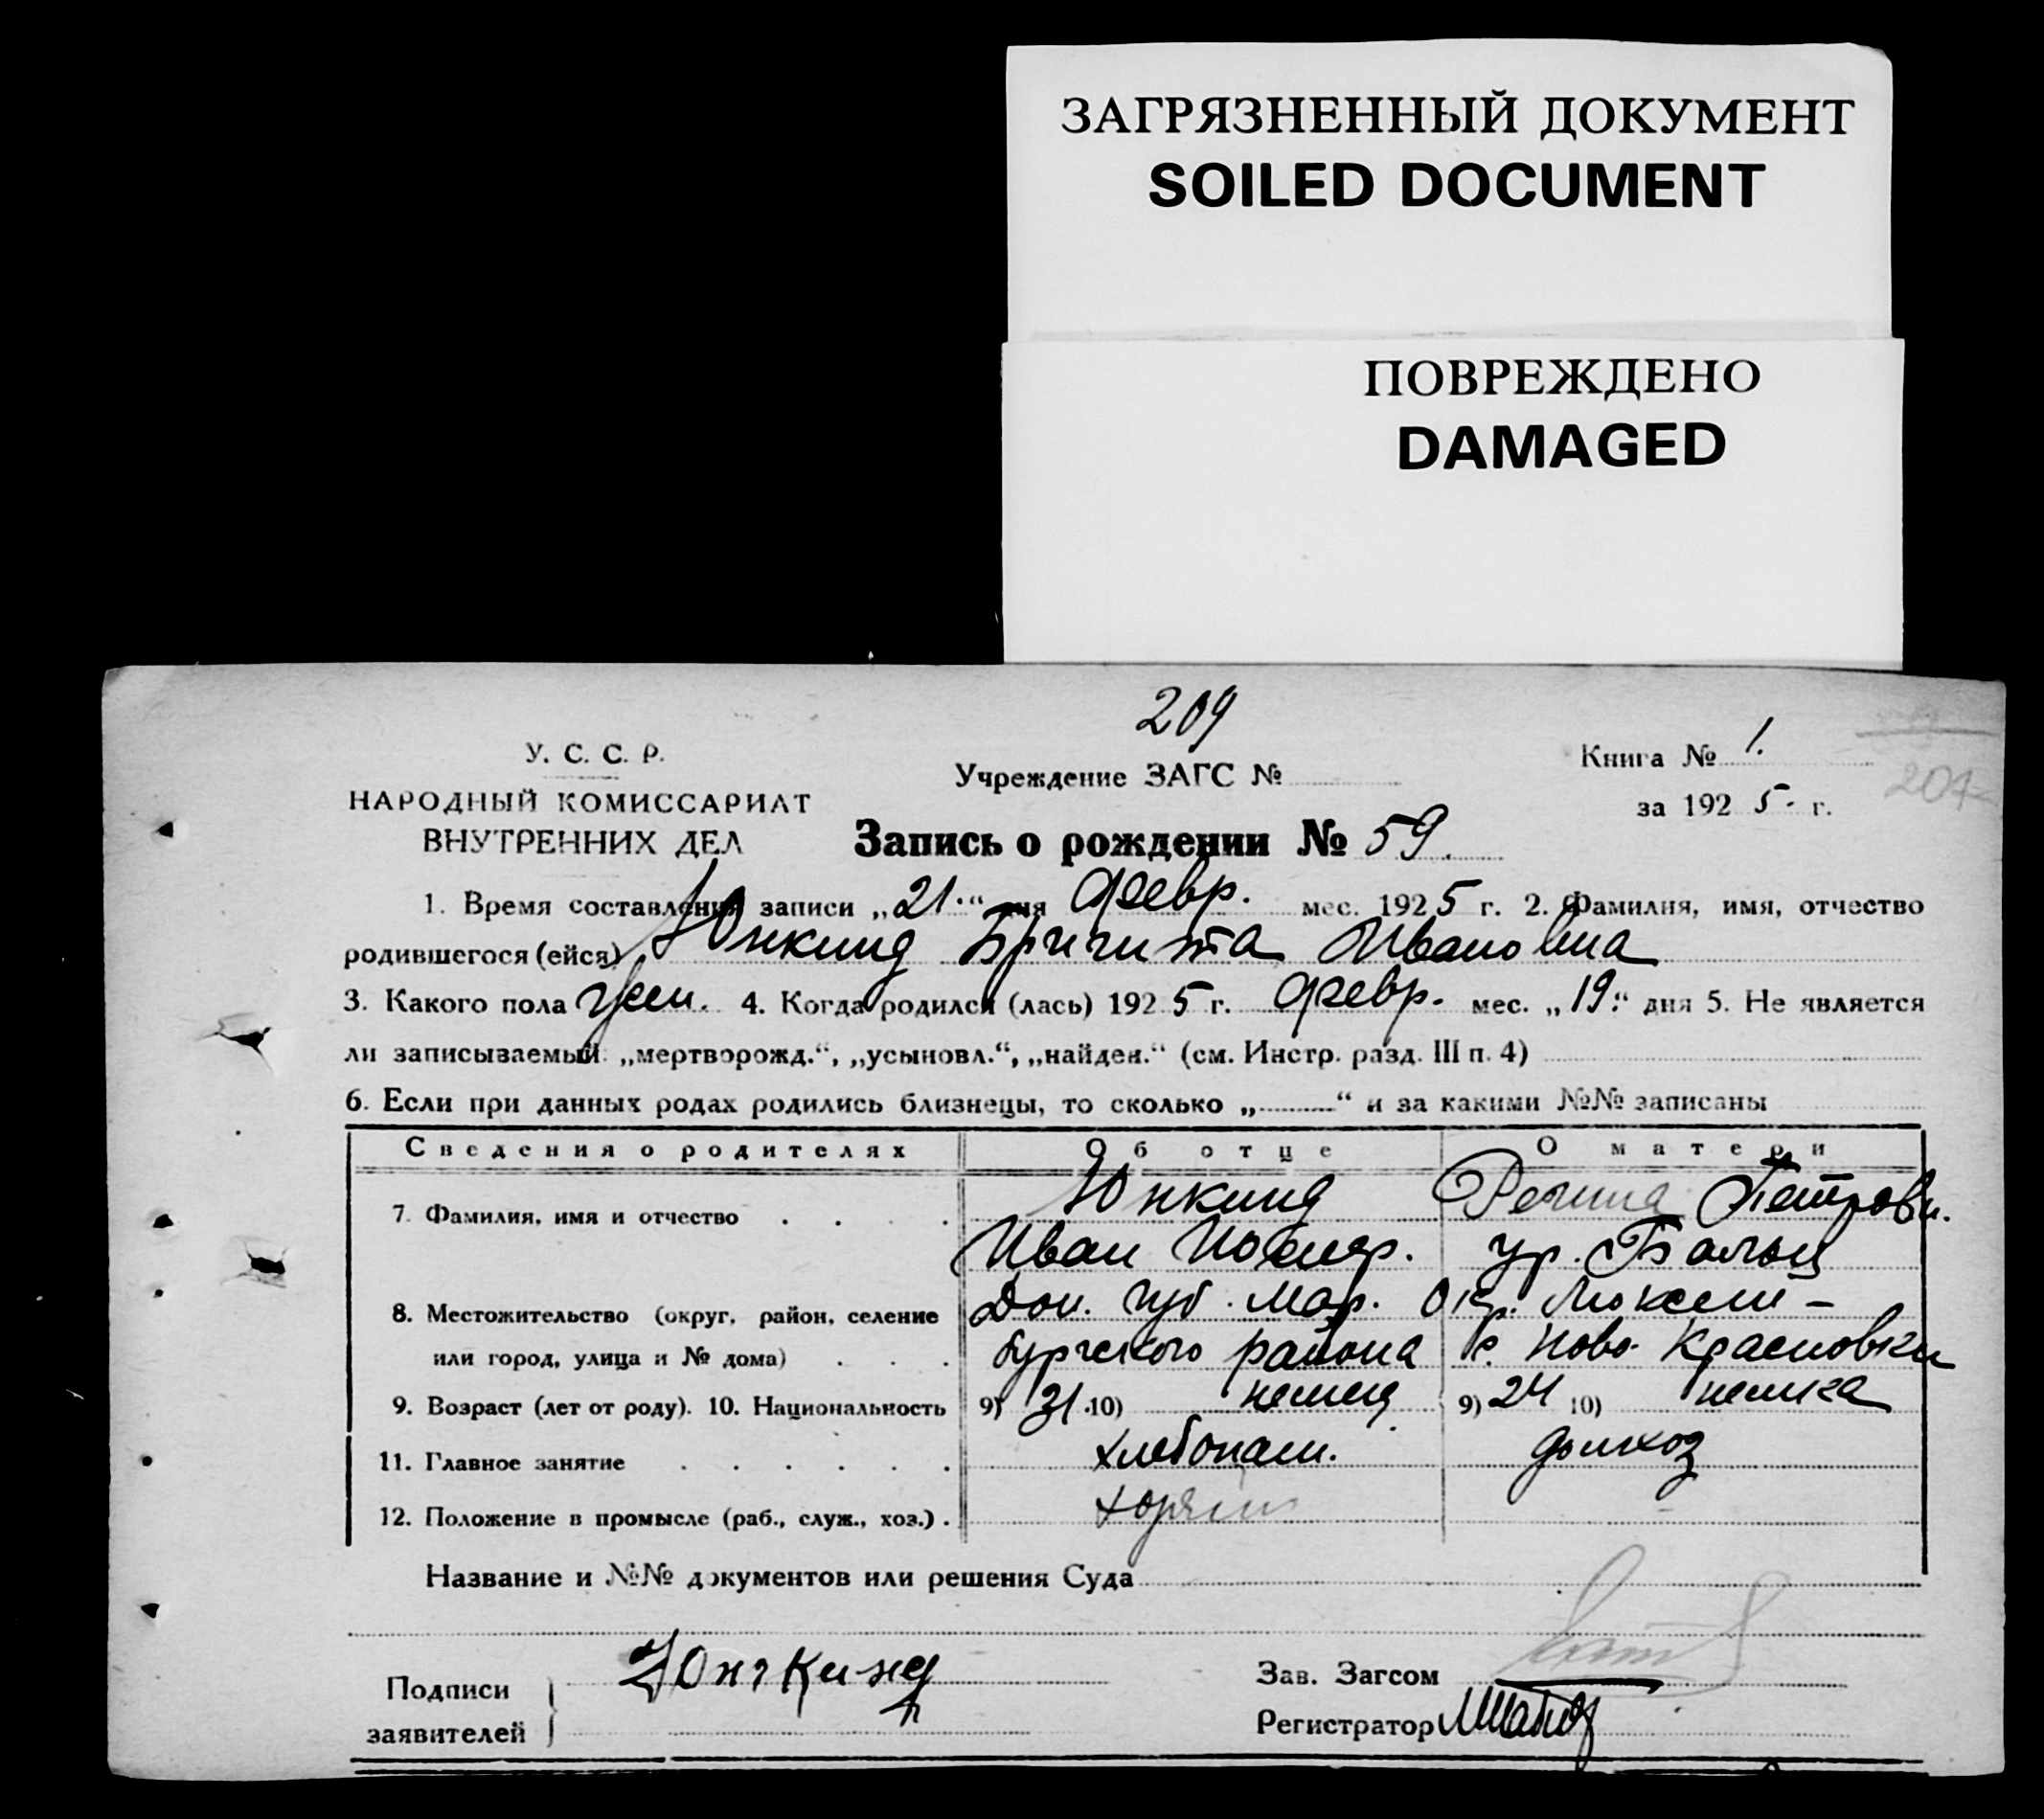 ЗАГРЯЗНЕННЫЙ ДОКУМЕНТ
SOILED DOCUMENT
ПОВРЕЖДЕНО
DAMAGED
209
У. С. С. Р.
НАРОДНЫЙ КОМИССАРИАТ
ВНУТРЕННИХ ДЕЛ
Учреждение ЗАГС №
Книга № 1.
за 1925. г.
204
Запись о рождении № 59.
1. Время составления записи „21.“ дня февр. мес. 1925 г. 2. Фамилия, имя, отчество
родившегося (ейся) Юнкинд Бригита Ивановна
3. Какого пола жен. 4. Когда родился (лась) 1925 г. февр. мес. „19.“ дня 5. Не является
ли записываемый „мертворожд.“, „усыновл.“, „найден.“ (см. Инстр. разд. III п. 4)
6. Если при данных родах родились близнецы, то сколько „ “ и за какими №№ записаны
Сведения о родителях Об отце О матери
7. Фамилия, имя и отчество Юнкинд Регина Петровн.
Иван ур. Бальц
8. Местожительство (округ, район, селение Дон. губ. Мар. Окр. Люксем-
или город, улица и № дома) бургского района с. Ново-Красновки
9. Возраст (лет от роду). 10. Национальность 9) 31 10) немец 9) 24 10) немка
11. Главное занятие хлебопаш. домхоз
12. Положение в промысле (раб., служ., хоз.)
Название и №№ документов или решения Суда
Подписи заявителей Юнгкинд
Зав. Загсом
Регистратор